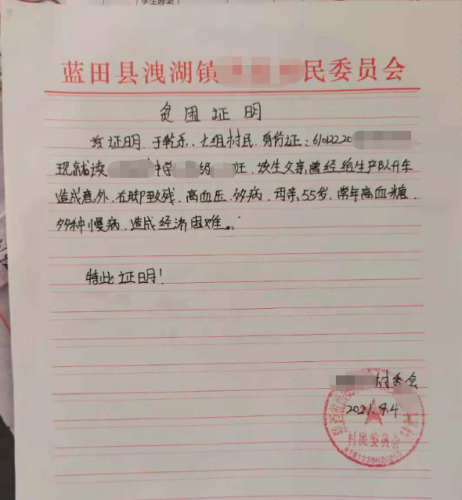 蓝田县洩湖镇 民委员会
贫困证明
兹证明，于乾乐，七组村民，身份证：610122.20
现就读 学 级 班，该生父亲曾经给生产队开车
造成意外，右脚致残，高血压，多病，母亲，55岁，常年高血糖，
多种慢病，造成经济困难。
特此证明！
村委会
2021.9.4
村民委员会